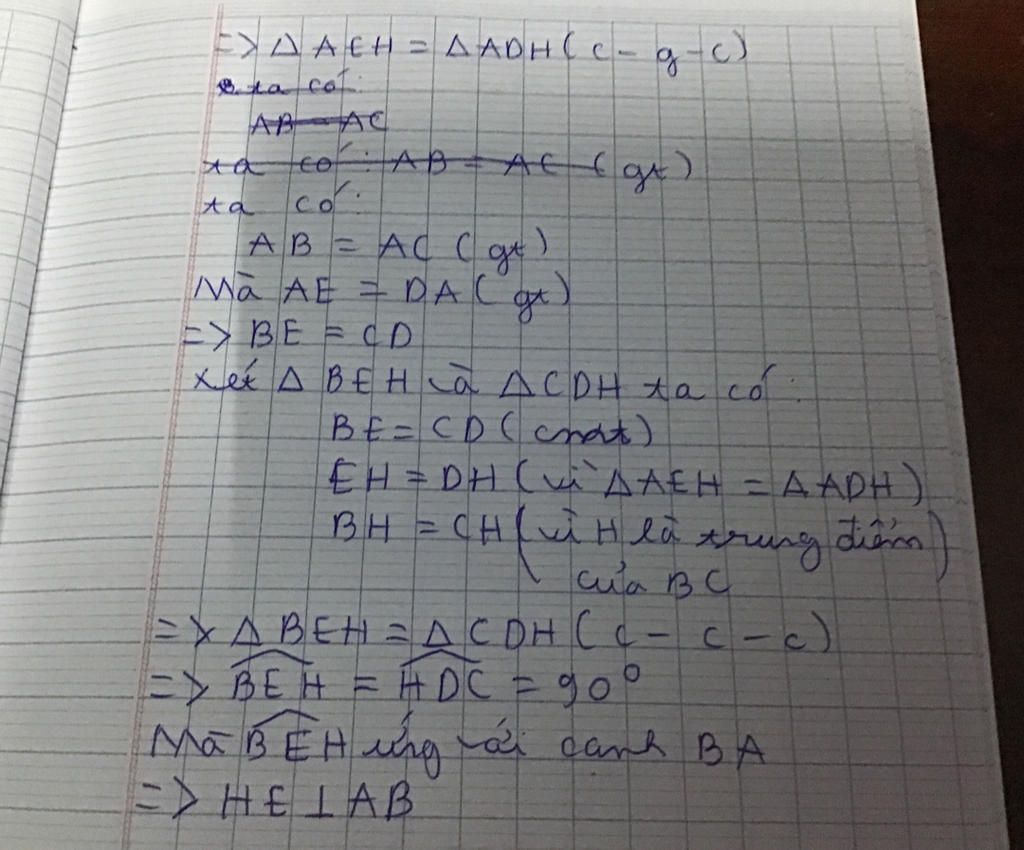 => Δ AEH = Δ ADH ( c - g - c )
ta có:
AB = AC
ta có: AB = AC ( gt )
ta có:
AB = AC ( gt )
Mà AE = DA ( gt )
=> BE = CD
Xét Δ BEH và Δ CDH ta có:
BE = CD ( cmát )
EH = DH ( vì Δ AEH = Δ ADH )
BH = CH ( vì H là trung điểm
của BC )
=> Δ BEH = Δ CDH ( c - c - c )
=> \widehat{BEH} = \widehat{HDC} = 90°
Mà \widehat{BEH} ứng với cạnh BA
=> HE ⊥ AB